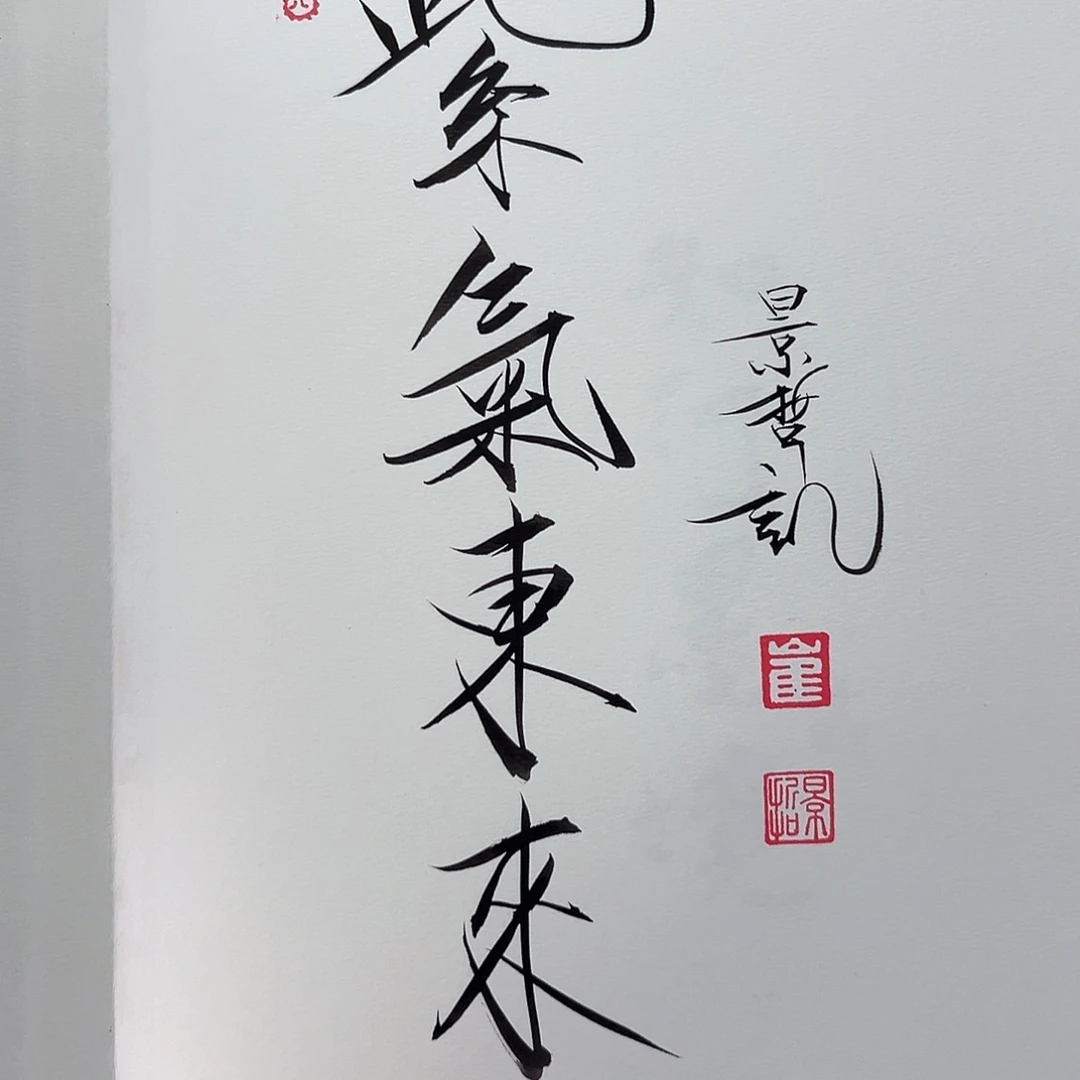 紫氣東來
景哲記
崔
景哲